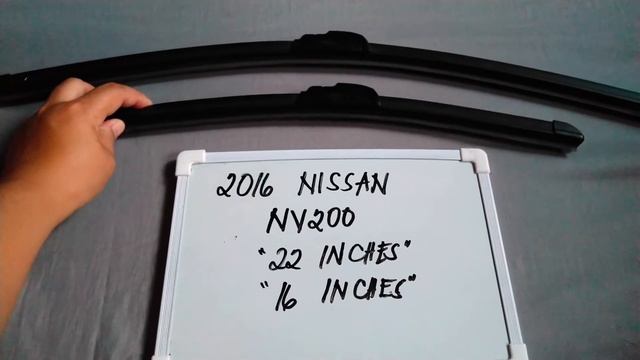 2016 NISSAN
NV200
"22 INCHES"
"16 INCHES"